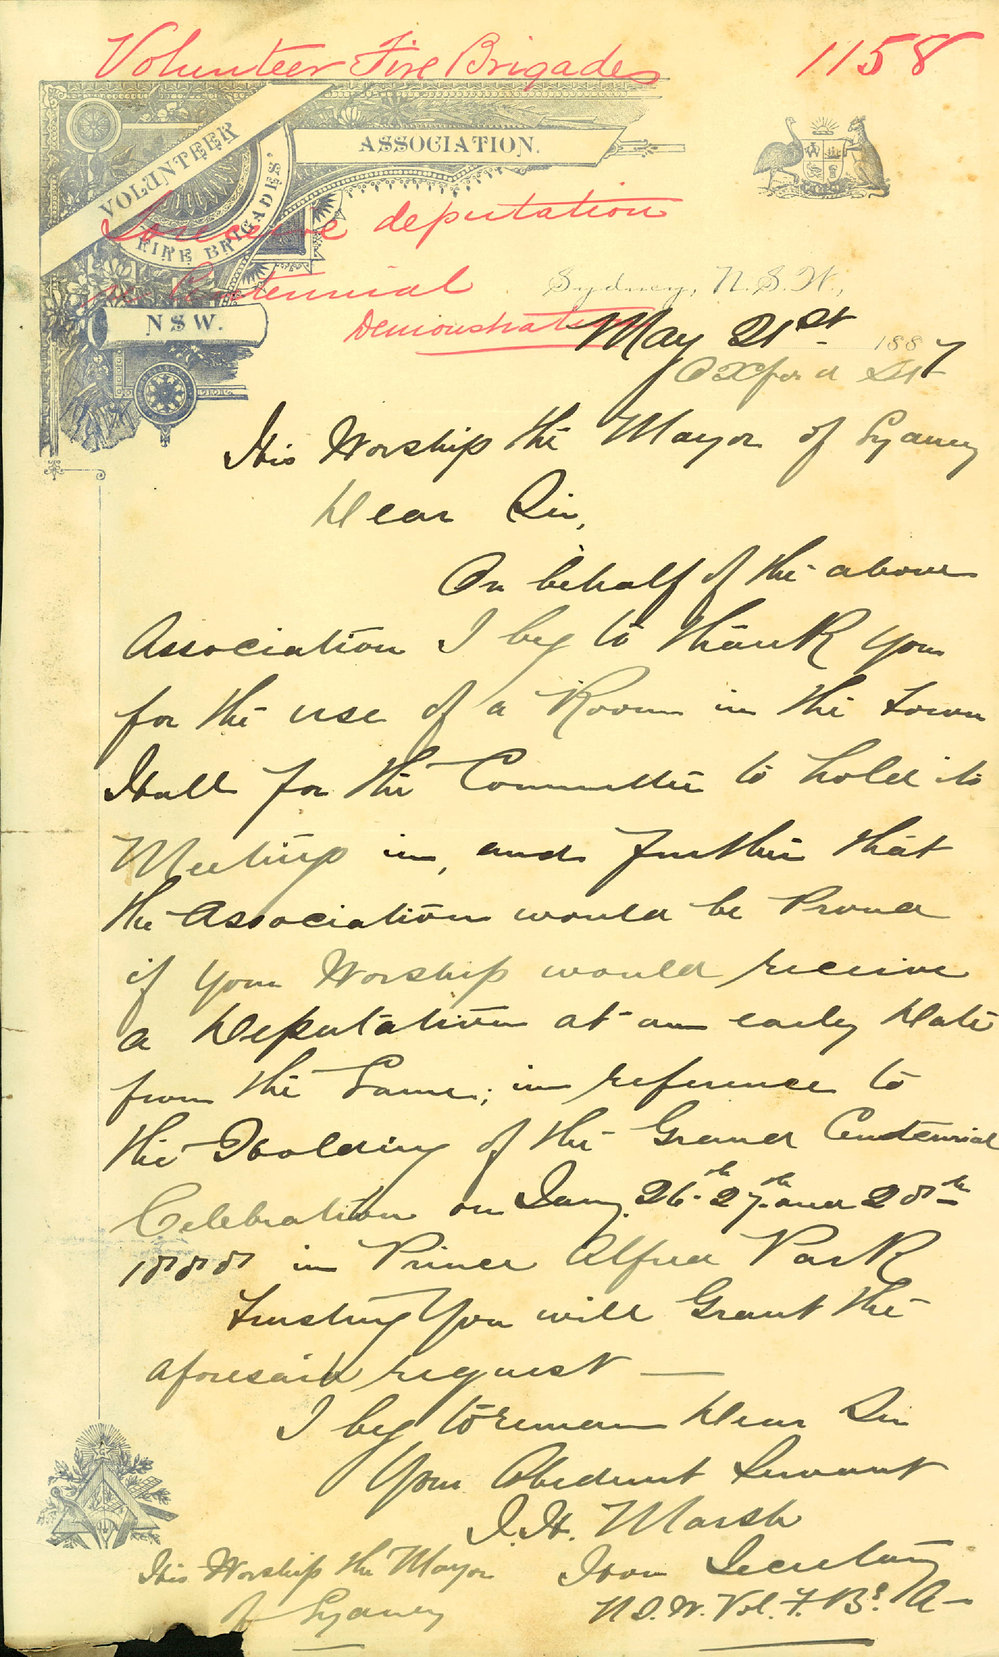 Volunteer Fire Brigades
1158
VOLUNTEER
FIRE BRIGADES'
ASSOCIATION.
NSW.
To receive deputation
re Centennial
Demonstration
Sydney, N.S.W.,
May 21st 1887
Oxford St
His Worship the Mayor of Sydney
Dear Sir,
On behalf of the above
Association I beg to thank you
for the use of a Room in the Town
Hall for the Committee to hold its
Meetings in, and further that
the Association would be Proud
if your Worship would receive
a Deputation at an early Date
from the Same; in reference to
the Holding of the Grand Centennial
Celebration on Jany. 26th 27th and 28th
1888 in Prince Alfred Park
Trusting you will Grant the
aforesaid request —
I beg to remain Dear Sir
Your Obedient Servant
J. H. Marsh
Hon Secretary
N.S.W. Vol. F. Bs. A—
His Worship the Mayor
of Sydney